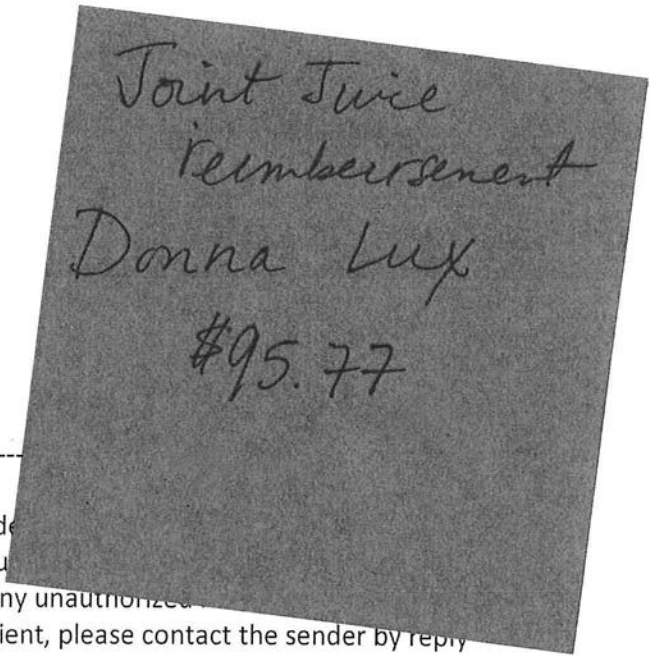 Joint Juice
reimbursement
Donna Lux
$95.77
---
de
u
ny unauthorized
ient, please contact the sender by reply